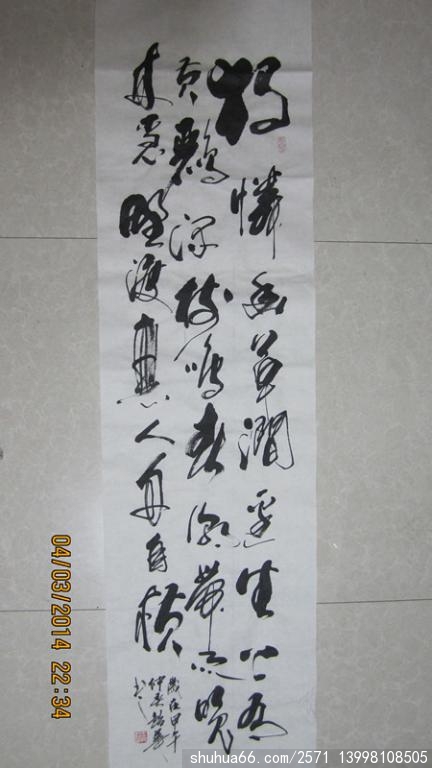 独憐幽草澗边生上有
黄鸝深树鳴春潮帶雨晚
来急野渡無人舟自横
歲在甲午
仲春
04/03/2014 22:34
shuhua66.com/2571 13998108505